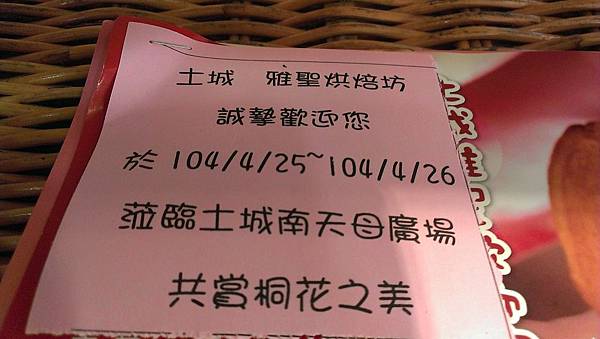 土城 雅聖烘焙坊
誠摯歡迎您
於 104/4/25~104/4/26
蒞臨土城南天母廣場
共賞桐花之美